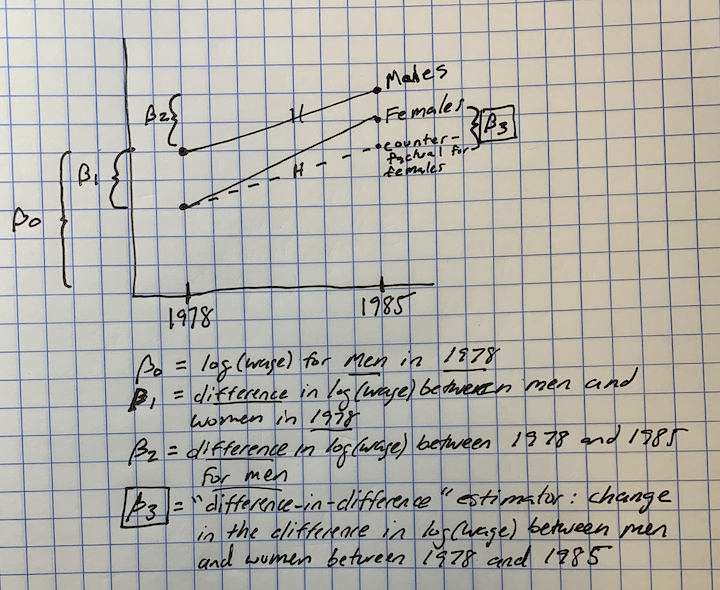 Males
β2
Females
β3
counter-
factual for
females
H
H
β1
β0
1978
1985
β0 = log(wage) for men in 1978
β1 = difference in log(wage) between men and
women in 1978
β2 = difference in log(wage) between 1978 and 1985
for men
β3 = "difference-in-difference" estimator: change
in the difference in log(wage) between men
and women between 1978 and 1985